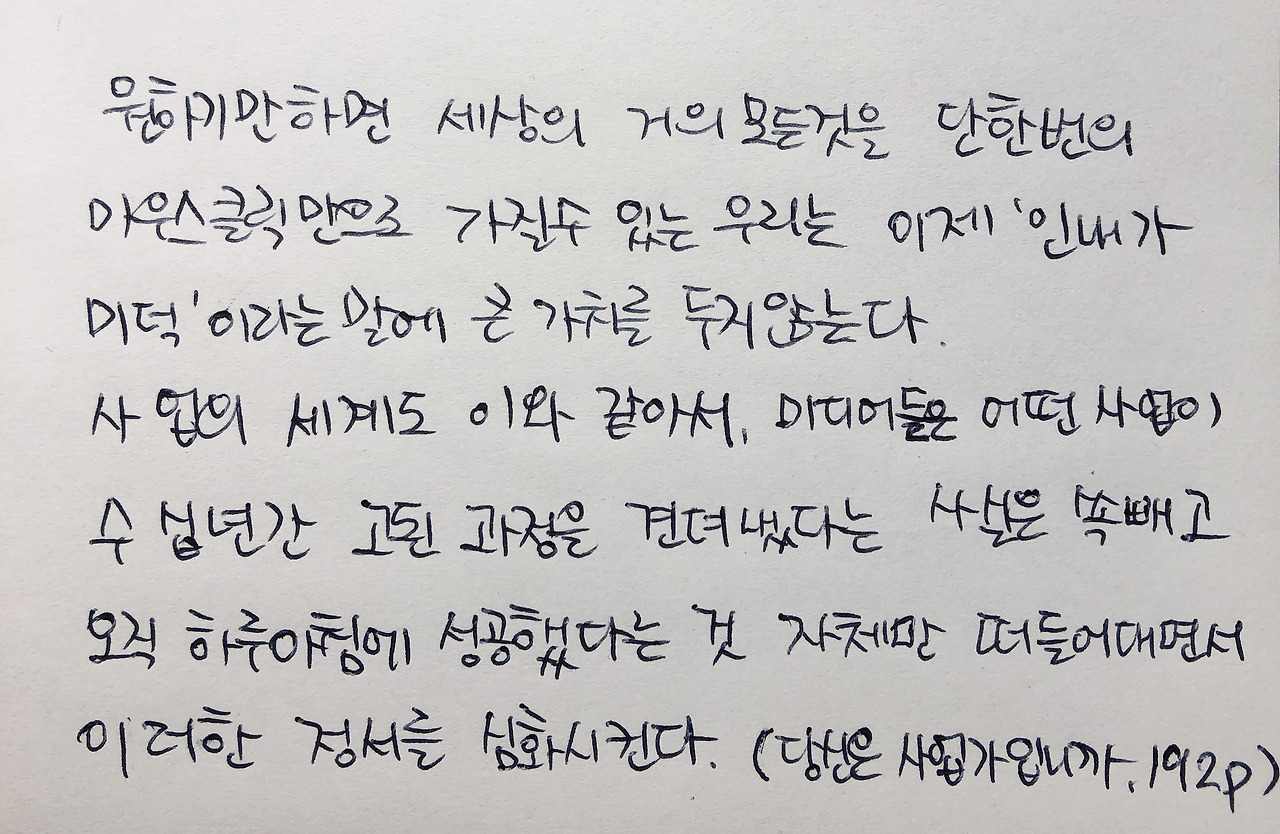 원하기만하면 세상의 거의 모든것을 단한번의
마우스클릭만으로 가질수 있는 우리는 이제 '인내가
미덕'이라는 말에 큰 가치를 두지않는다.
사업의 세계도 이와 같아서, 미디어들은 어떤 사업이
수십년간 고된 과정을 견뎌냈다는 사실은 쏙빼고
오직 하루아침에 성공했다는 것 자체만 떠들어대면서
이러한 정서를 심화시킨다. (당신은 사업가입니까, 192p)